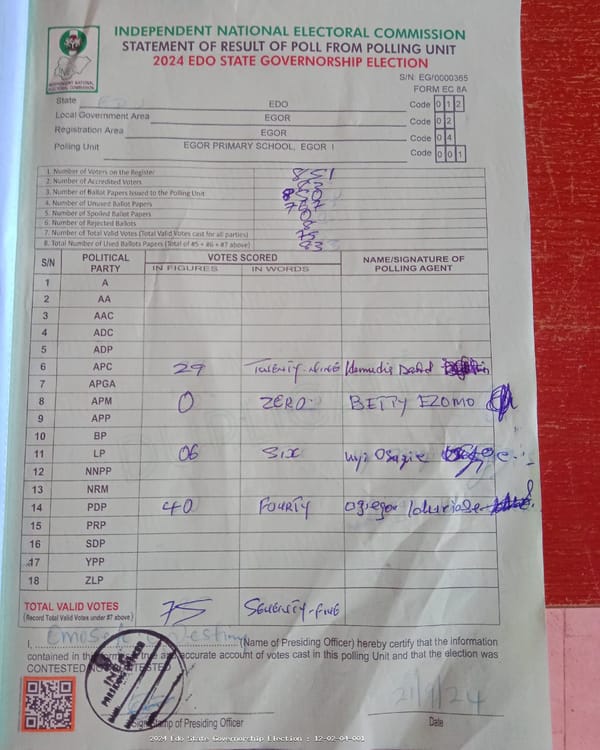 INDEPENDENT NATIONAL ELECTORAL COMMISSION
STATEMENT OF RESULT OF POLL FROM POLLING UNIT
2024 EDO STATE GOVERNORSHIP ELECTION
S/N: EG/0000365
FORM EC 8A
INDEPENDENT NATIONAL ELECTORAL COMMISSION
State EDO Code 0 1 2
Local Government Area EGOR Code 0 2
Registration Area EGOR Code 0 4
Polling Unit EGOR PRIMARY SCHOOL, EGOR I Code 0 0 1
1. Number of Voters on the Register 851
2. Number of Accredited Voters 83
3. Number of Ballot Papers Issued to the Polling Unit
4. Number of Unused Ballot Papers
5. Number of Spoiled Ballot Papers
6. Number of Rejected Ballots
7. Number of Total Valid Votes (Total Valid Votes cast for all parties) 75
8. Total Number of Used Ballots Papers (Total of #5 + #6 + #7 above) 83
S/N POLITICAL PARTY VOTES SCORED NAME/SIGNATURE OF POLLING AGENT
IN FIGURES IN WORDS
1 A
2 AA
3 AAC
4 ADC
5 ADP
6 APC 29 TWENTY-NINE
7 APGA
8 APM 0 ZERO. BETTY EZOMO
9 APP
10 BP
11 LP 06 SIX Osazie
12 NNPP
13 NRM
14 PDP 40 FOURTY
15 PRP
16 SDP
17 YPP
18 ZLP
TOTAL VALID VOTES 75 SEVENTY-FIVE
(Record Total Valid Votes under #7 above)
I, (Name of Presiding Officer) hereby certify that the information
contained in this form is a true and accurate account of votes cast in this polling Unit and that the election was
CONTESTED/NOT CONTESTED.
21/9/24
Sign/Stamp of Presiding Officer Date
2024 Edo State Governorship Election : 12-02-04-001